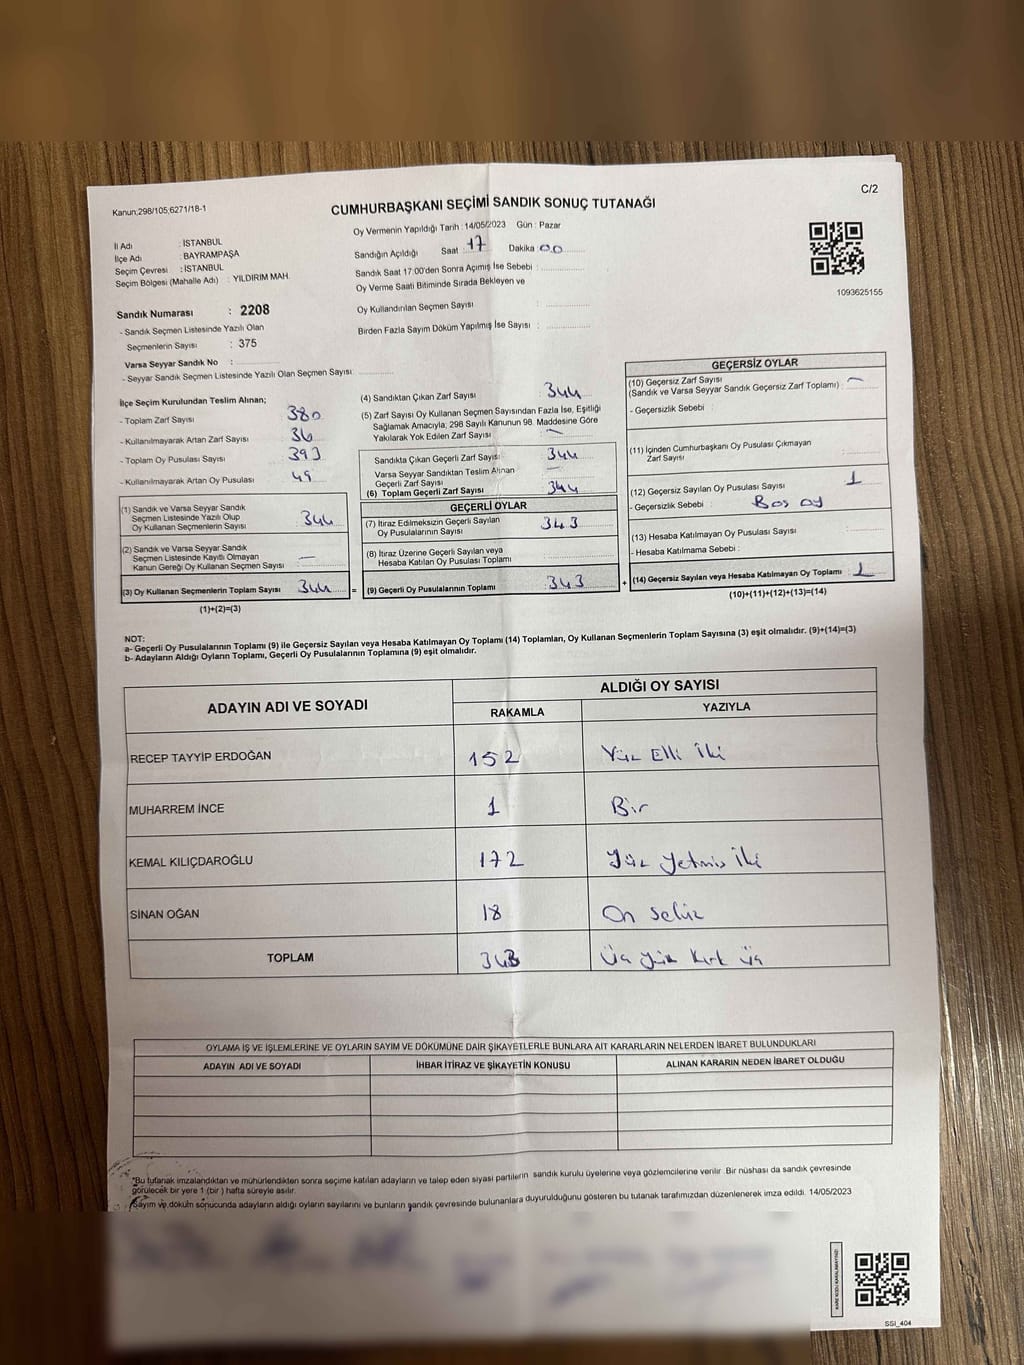 Kanun;298/105;6271/18-1
C/2
CUMHURBAŞKANI SEÇİMİ SANDIK SONUÇ TUTANAĞI
İl Adı : İSTANBUL
İlçe Adı : BAYRAMPAŞA
Seçim Çevresi : İSTANBUL
Seçim Bölgesi (Mahalle Adı) : YILDIRIM MAH.
Oy Vermenin Yapıldığı Tarih : 14/05/2023 Gün : Pazar
Sandığın Açıldığı Saat 17 Dakika 00
Sandık Saat 17:00'den Sonra Açımış İse Sebebi :
Oy Verme Saati Bitiminde Sırada Bekleyen ve
Oy Kullandırılan Seçmen Sayısı :
Birden Fazla Sayım Döküm Yapılmış İse Sayısı :
1093625155
Sandık Numarası : 2208
- Sandık Seçmen Listesinde Yazılı Olan
Seçmenlerin Sayısı : 375
Varsa Seyyar Sandık No :
- Seyyar Sandık Seçmen Listesinde Yazılı Olan Seçmen Sayısı :
İlçe Seçim Kurulundan Teslim Alınan;
- Toplam Zarf Sayısı 380
- Kullanılmayarak Artan Zarf Sayısı 36
- Toplam Oy Pusulası Sayısı 393
- Kullanılmayarak Artan Oy Pusulası 49
(1) Sandık ve Varsa Seyyar Sandık
Seçmen Listesinde Yazılı Olup
Oy Kullanan Seçmenlerin Sayısı : 344
(2) Sandık ve Varsa Seyyar Sandık
Seçmen Listesinde Kayıtlı Olmayan
Kanun Gereği Oy Kullanan Seçmen Sayısı : —
(3) Oy Kullanan Seçmenlerin Toplam Sayısı 344 =
(1)+(2)=(3)
(4) Sandıktan Çıkan Zarf Sayısı : 344
(5) Zarf Sayısı Oy Kullanan Seçmen Sayısından Fazla İse, Eşitliği
Sağlamak Amacıyla; 298 Sayılı Kanunun 98. Maddesine Göre
Yakılarak Yok Edilen Zarf Sayısı : —
Sandıkta Çıkan Geçerli Zarf Sayısı : 344
Varsa Seyyar Sandıktan Teslim Alınan
Geçerli Zarf Sayısı : —
(6) Toplam Geçerli Zarf Sayısı : 344
GEÇERLİ OYLAR
(7) İtiraz Edilmeksizin Geçerli Sayılan
Oy Pusulalarının Sayısı : 343
(8) İtiraz Üzerine Geçerli Sayılan veya
Hesaba Katılan Oy Pusulası Toplamı :
(9) Geçerli Oy Pusulalarının Toplamı : 343 +
GEÇERSİZ OYLAR
(10) Geçersiz Zarf Sayısı
(Sandık ve Varsa Seyyar Sandık Geçersiz Zarf Toplamı) : —
- Geçersizlik Sebebi :
(11) İçinden Cumhurbaşkanı Oy Pusulası Çıkmayan
Zarf Sayısı :
(12) Geçersiz Sayılan Oy Pusulası Sayısı : 1
- Geçersizlik Sebebi : Boş oy
(13) Hesaba Katılmayan Oy Pusulası Sayısı :
- Hesaba Katılmama Sebebi :
(14) Geçersiz Sayılan veya Hesaba Katılmayan Oy Toplamı : 1
(10)+(11)+(12)+(13)=(14)
NOT:
a- Geçerli Oy Pusulalarının Toplamı (9) ile Geçersiz Sayılan veya Hesaba Katılmayan Oy Toplamı (14) Toplamları, Oy Kullanan Seçmenlerin Toplam Sayısına (3) eşit olmalıdır. (9)+(14)=(3)
b- Adayların Aldığı Oyların Toplamı, Geçerli Oy Pusulalarının Toplamına (9) eşit olmalıdır.
ADAYIN ADI VE SOYADI
ALDIĞI OY SAYISI
RAKAMLA YAZIYLA
RECEP TAYYİP ERDOĞAN 152 Yüz Elli İki
MUHARREM İNCE 1 Bir
KEMAL KILIÇDAROĞLU 172 Yüz Yetmiş İki
SİNAN OĞAN 18 On sekiz
TOPLAM 343 Üç yüz kırk üç
OYLAMA İŞ VE İŞLEMLERİNE VE OYLARIN SAYIM VE DÖKÜMÜNE DAİR ŞİKAYETLERLE BUNLARA AİT KARARLARIN NELERDEN İBARET BULUNDUKLARI
ADAYIN ADI VE SOYADI İHBAR İTİRAZ VE ŞİKAYETİN KONUSU ALINAN KARARIN NEDEN İBARET OLDUĞU
*Bu tutanak imzalandıktan ve mühürlendikten sonra seçime katılan adayların ve talep eden siyasi partilerin sandık kurulu üyelerine veya gözlemcilerine verilir. Bir nüshası da sandık çevresinde
görülecek bir yere 1 (bir) hafta süreyle asılır.
Sayım ve döküm sonucunda adayların aldığı oyların sayılarını ve bunların sandık çevresinde bulunanlara duyurulduğunu gösteren bu tutanak tarafımızdan düzenlenerek imza edildi. 14/05/2023
SSI_404